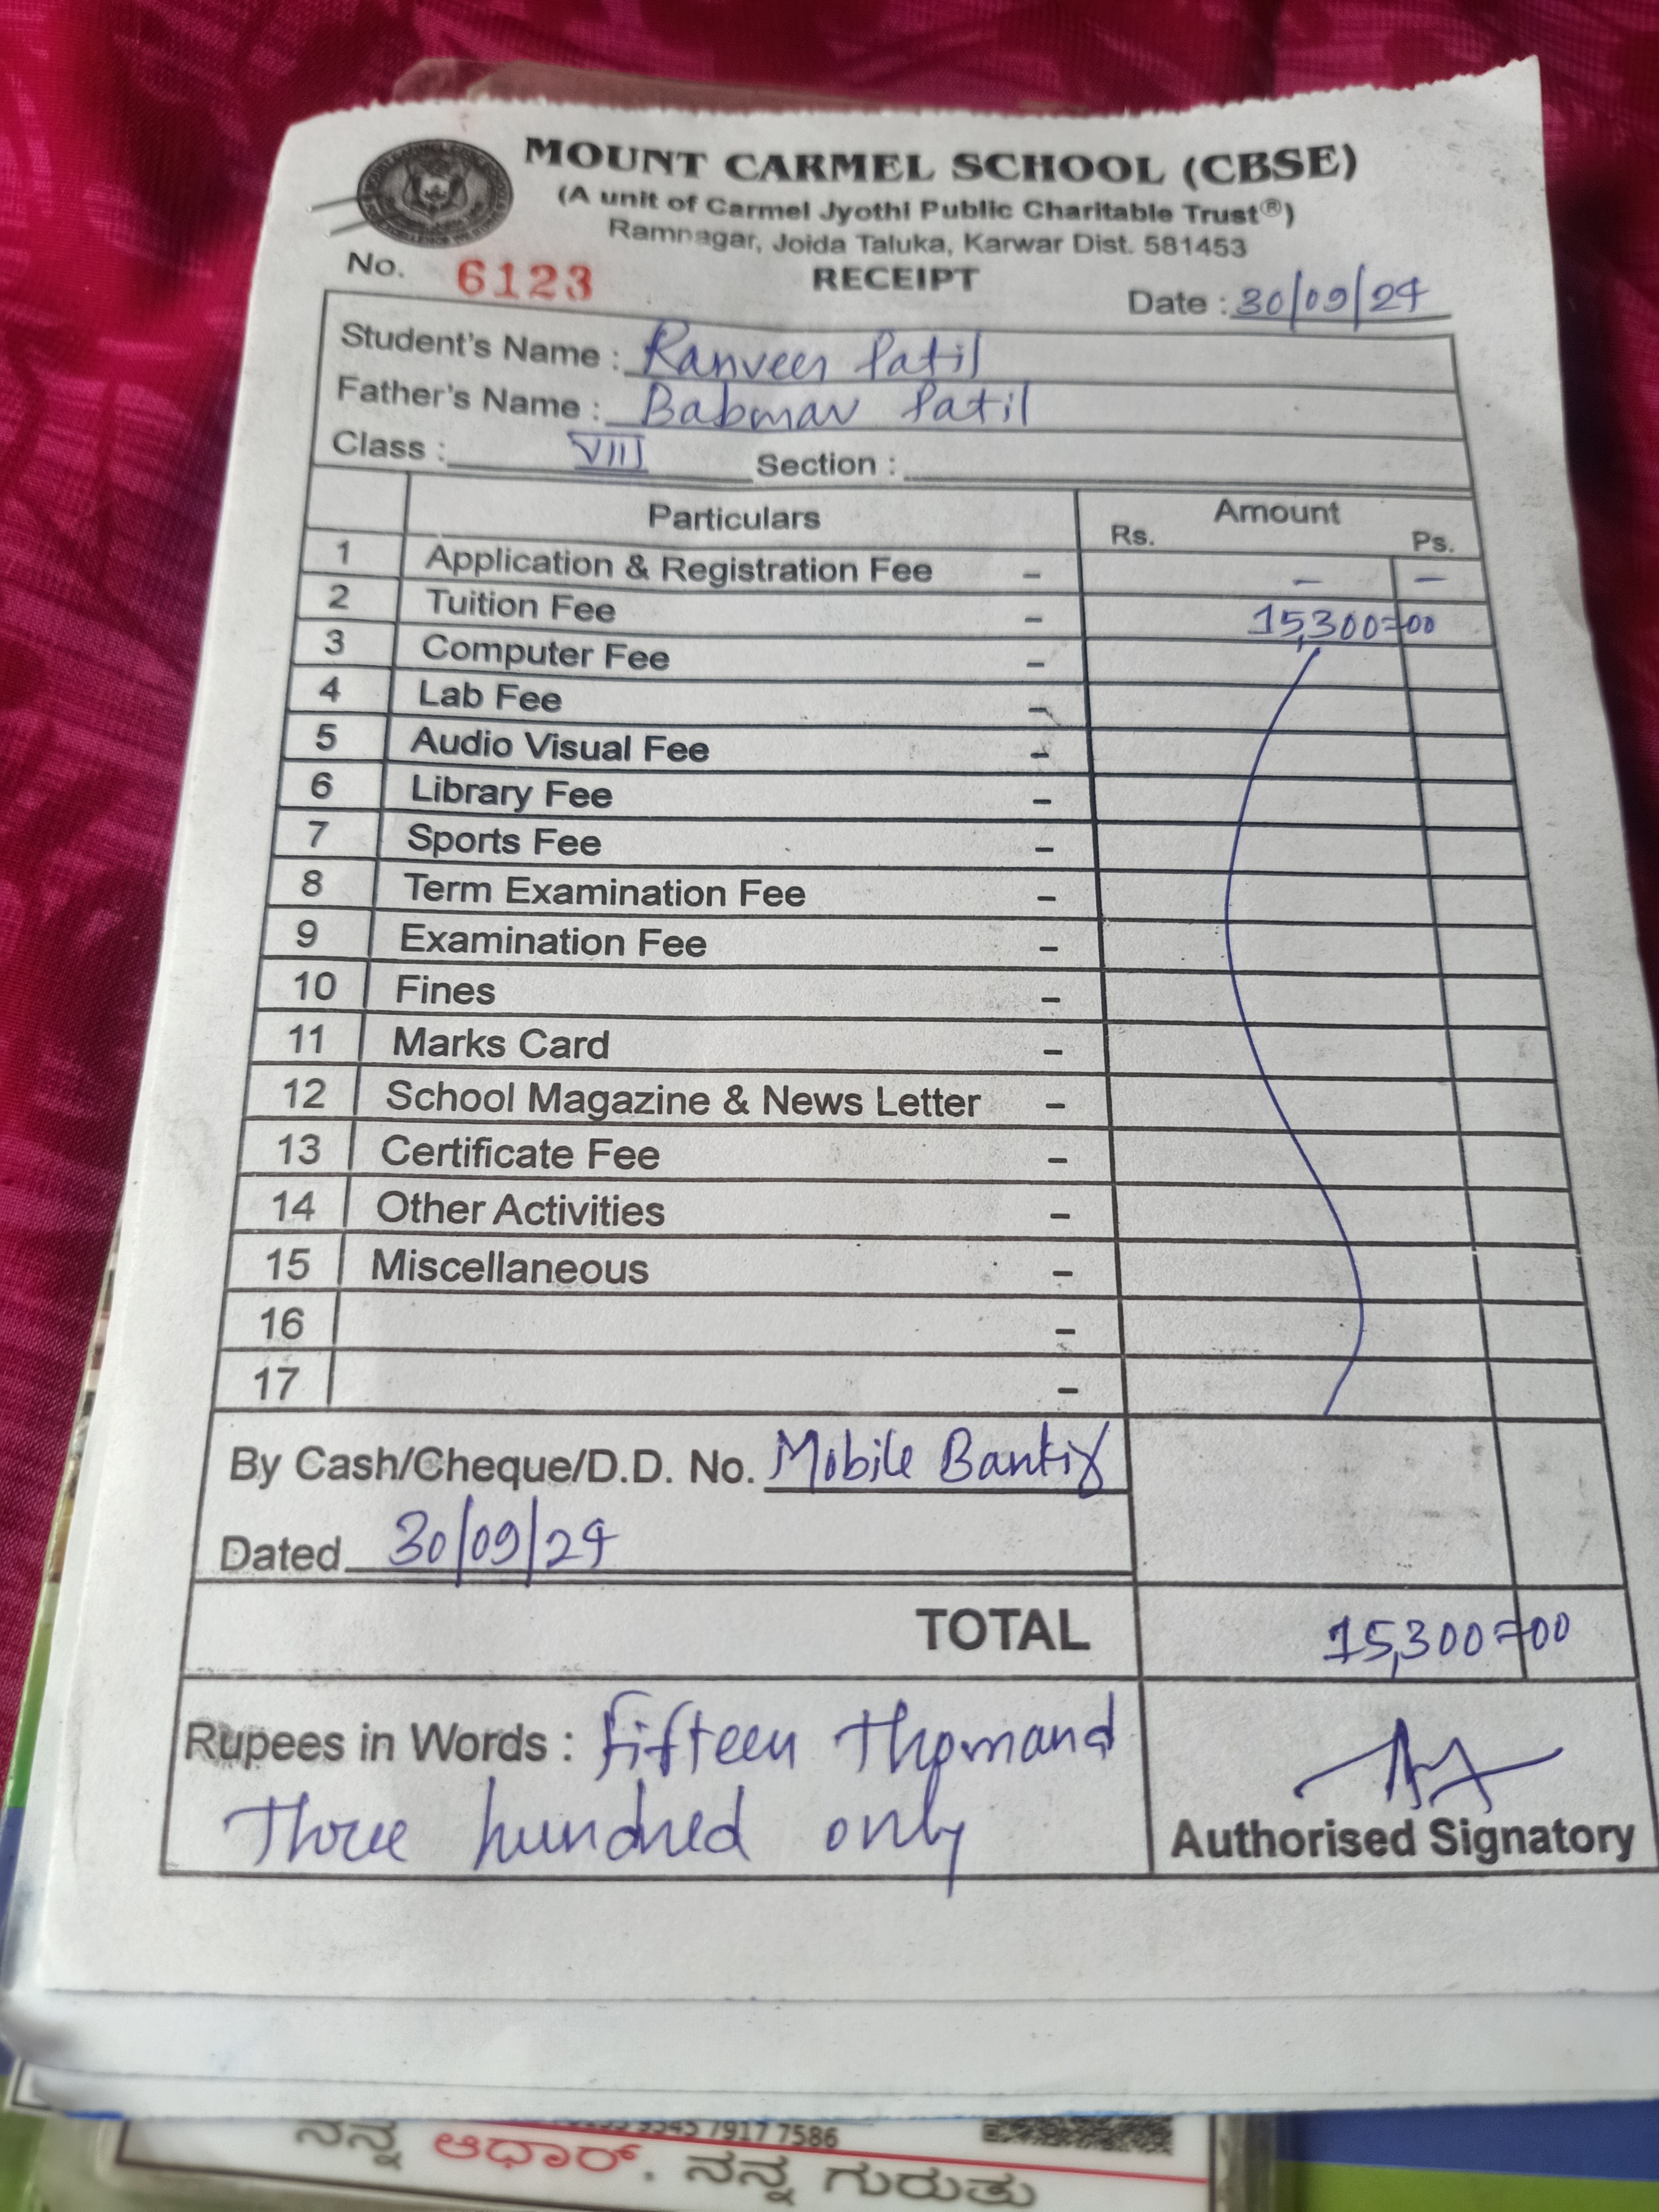 MOUNT CARMEL SCHOOL (CBSE)
(A unit of Carmel Jyothi Public Charitable Trust®)
Ramnagar, Joida Taluka, Karwar Dist. 581453
No. 6123 RECEIPT Date : 30/09/24
Student's Name : Ranveer Patil
Father's Name : Patil
Class : VIII Section :
Particulars Amount
Rs. Ps.
1 Application & Registration Fee - - -
2 Tuition Fee - 15,300=00
3 Computer Fee -
4 Lab Fee -
5 Audio Visual Fee -
6 Library Fee -
7 Sports Fee -
8 Term Examination Fee -
9 Examination Fee -
10 Fines -
11 Marks Card -
12 School Magazine & News Letter -
13 Certificate Fee -
14 Other Activities -
15 Miscellaneous -
16 -
17 -
By Cash/Cheque/D.D. No. Mobile Banking
Dated 30/09/24
TOTAL 15,300=00
Rupees in Words : Fifteen Thousand
Three hundred only
Authorised Signatory
7917 7586
ನನ್ನ ಆಧಾರ್, ನನ್ನ ಗುರುತು